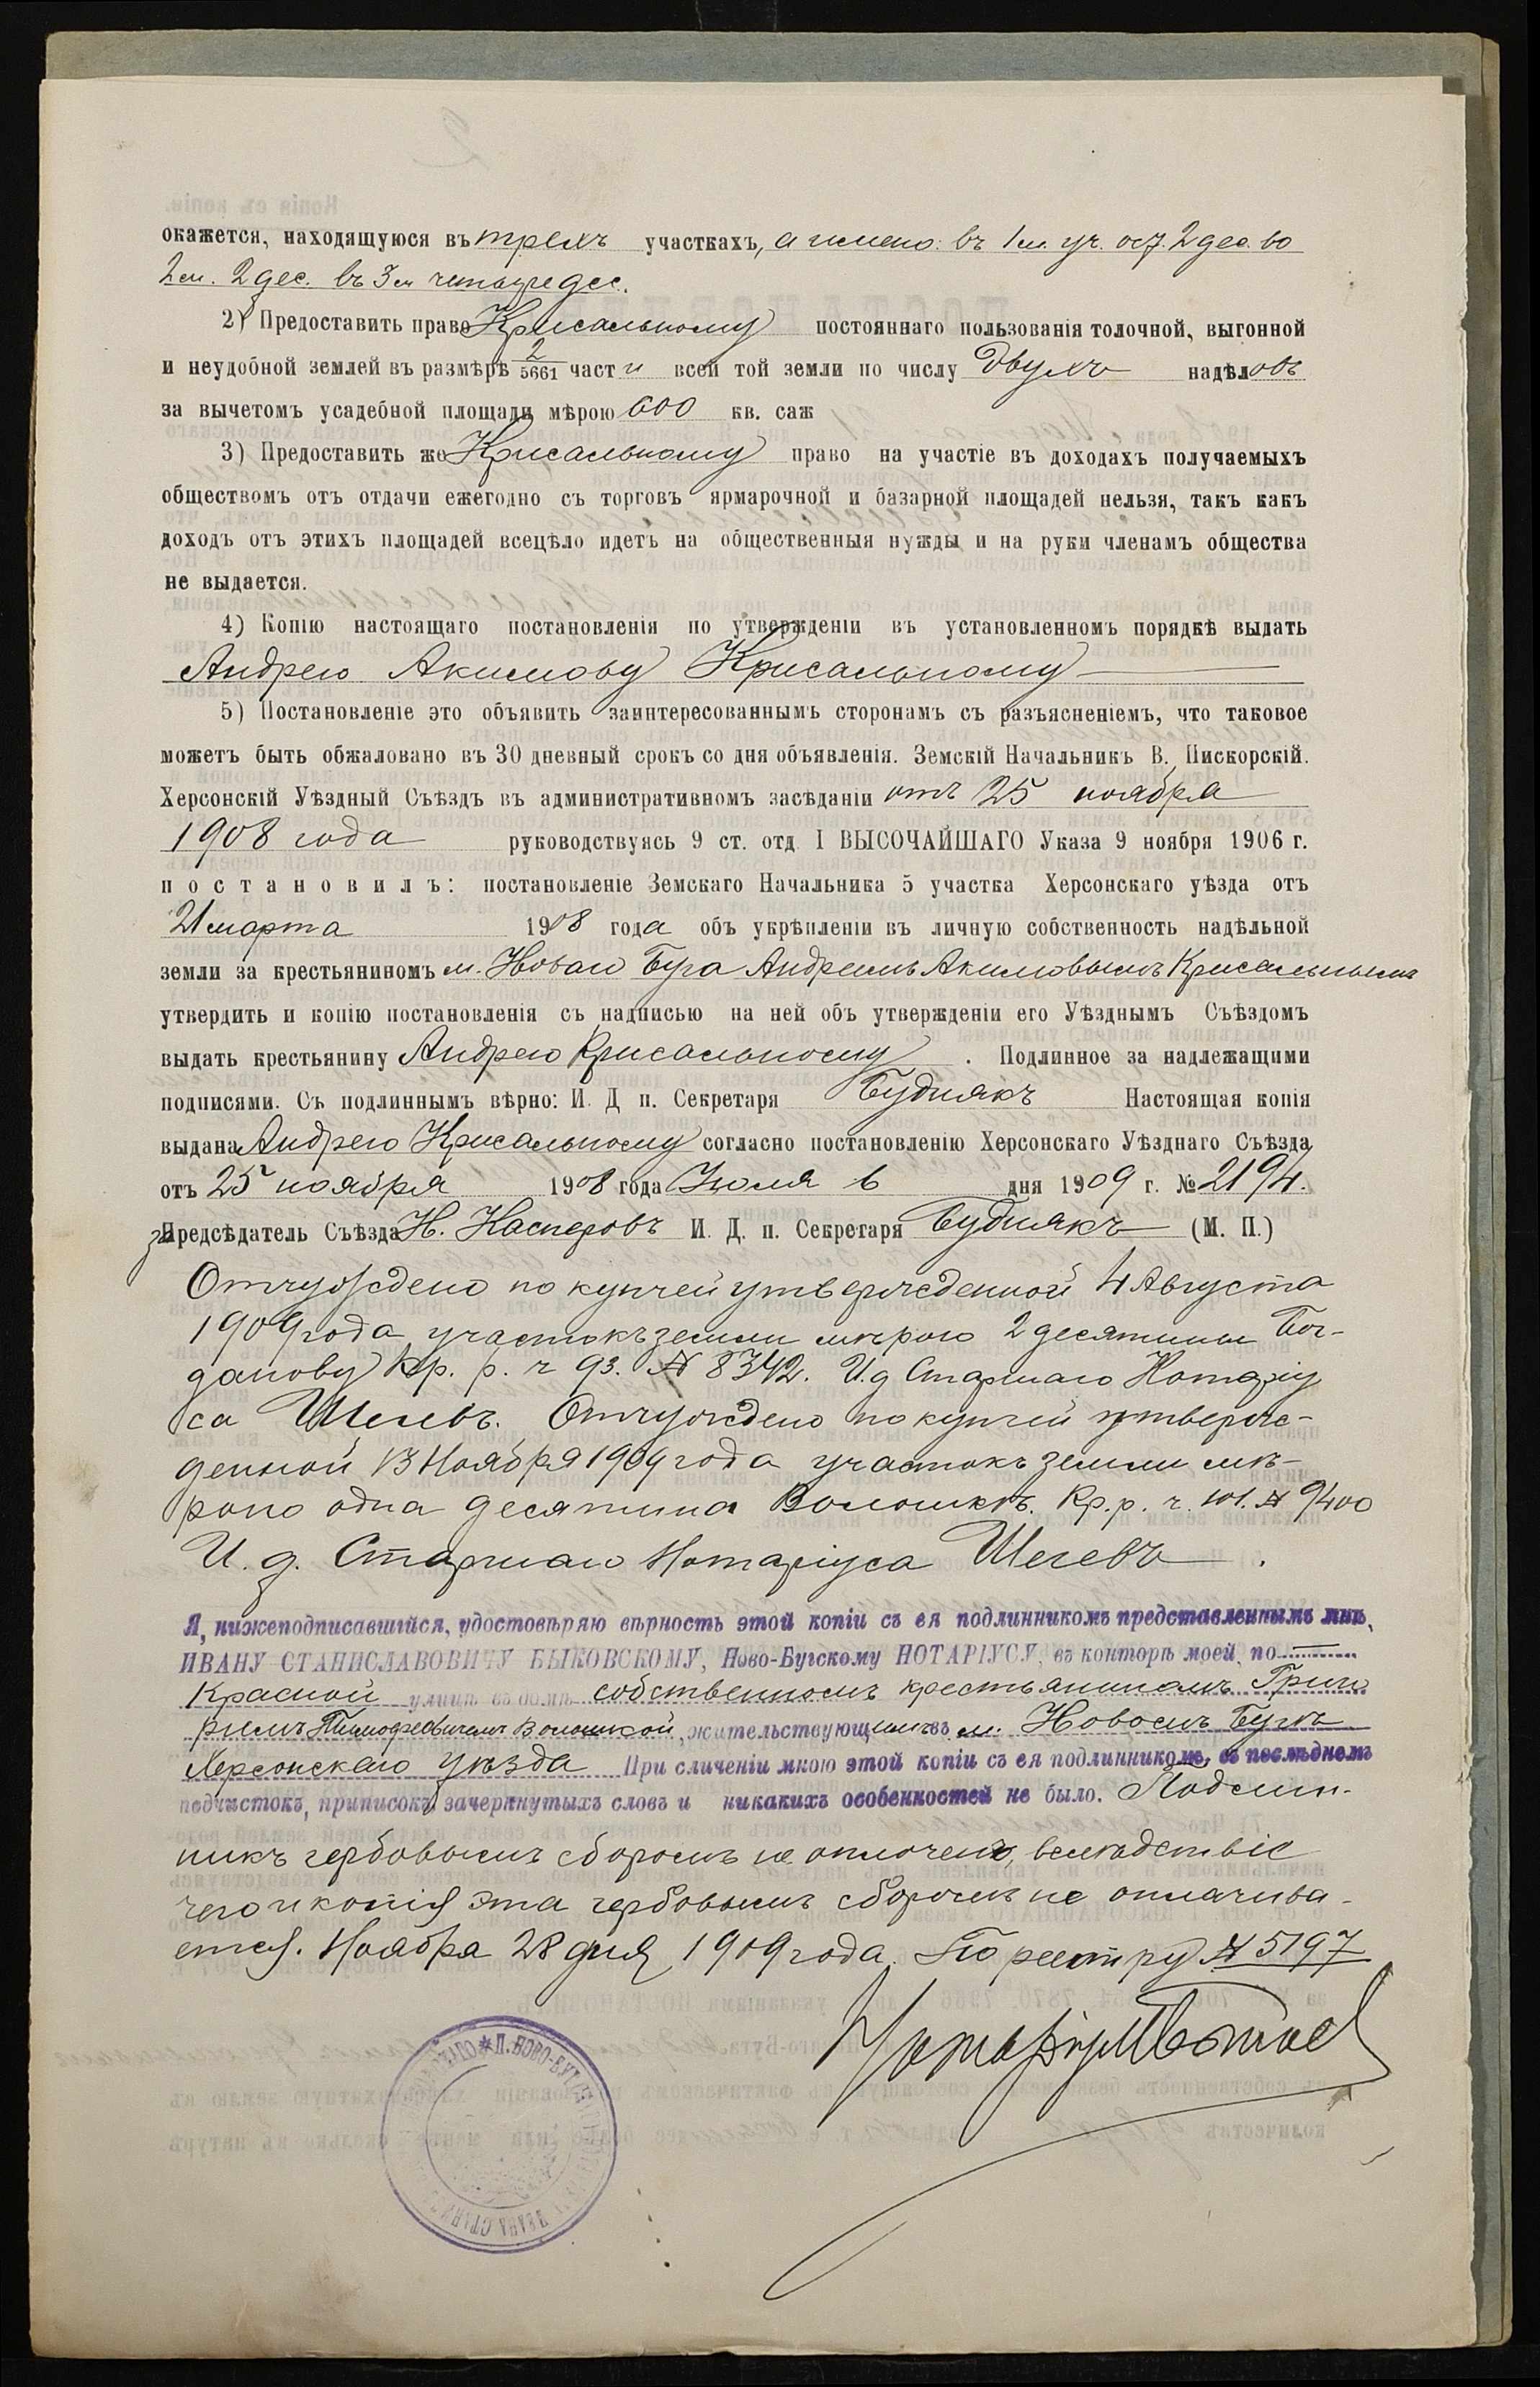 окажется, находящуюся въ трехъ участкахъ, а имено: въ 1м. уч. 2 дес. во
2м. 2 дес. въ 3м четыре дес.
2) Предоставить право Крисальному постояннаго пользованія толочной, выгонной
и неудобной землей въ размѣрѣ 2/5661 части всей той земли по числу двухъ надѣловъ
за вычетомъ усадебной площади мѣрою 600 кв. саж
3) Предоставить же Крисальному право на участіе въ доходахъ получаемыхъ
обществомъ отъ отдачи ежегодно съ торговъ ярмарочной и базарной площадей нельзя, такъ какъ
доходъ отъ этихъ площадей всецѣло идетъ на общественныя нужды и на руки членамъ общества
не выдается.
4) Копію настоящаго постановленія по утвержденіи въ установленномъ порядкѣ выдать
Андрею Акимову Крисальному
5) Постановленіе это объявить заинтересованнымъ сторонамъ съ разъясненіемъ, что таковое
можетъ быть обжаловано въ 30 дневный срокъ со дня объявленія. Земскій Начальникъ В. Пискорскій.
Херсонскій Уѣздный Съѣздъ въ административномъ засѣданіи отъ 25 ноября
1908 года руководствуясь 9 ст. отд I ВЫСОЧАЙШАГО Указа 9 ноября 1906 г.
постановилъ: постановленіе Земскаго Начальника 5 участка Херсонскаго уѣзда отъ
21 марта 1908 года объ укрѣпленіи въ личную собственность надѣльной
земли за крестьяниномъ м. Новаго Буга Андреемъ Акимовымъ Крисальнымъ
утвердить и копію постановленія съ надписью на ней объ утвержденіи его Уѣзднымъ Съѣздомъ
выдать крестьянину Андрею Крисальному. Подлинное за надлежащими
подписями. Съ подлиннымъ вѣрно: И. Д п. Секретаря Будникъ Настоящая копія
выдана Андрею Крисальному согласно постановленію Херсонскаго Уѣзднаго Съѣзда
отъ 25 ноября 1908 года Іюля 6 дня 1909 г. № 2194.
за Предсѣдатель Съѣзда Н. Касперовъ И. Д. п. Секретаря Будникъ (М. П.)
Отчуждено по купчей утвержденной 4 Августа
1909 года участокъ земли мѣрою 2 десятины Бог-
данову Кр. р. ч 93. № 8342. И.д Старшаго Нотаріу
са Шегевъ. Отчуждено по купчей утверж-
денной 13 Ноября 1909 года участокъ земли мѣ-
рою одна десятина Волошкѣ. Кр. р. ч. 101. № 9400
И. д. Старшаго Нотаріуса Шегевъ.
Я, нижеподписавшійся, удостовѣряю вѣрность этой копіи съ ея подлинникомъ представленнымъ мнѣ,
ИВАНУ СТАНИСЛАВОВИЧУ БЫКОВСКОМУ, Ново-Бугскому НОТАРІУСУ, въ конторѣ моей, по
Красной улицѣ въ домѣ собственномъ крестьяниномъ Григо
ріемъ Тимофеевичемъ Волошкой, жительствующимъ въ м. Новомъ Бугѣ
Херсонскаго уѣзда При сличеніи мною этой копіи съ ея подлинникомъ, въ послѣднемъ
подчистокъ, приписокъ, зачеркнутыхъ словъ и никакихъ особенностей не было. Подлин-
никъ гербовымъ сборомъ не оплоченъ, вслѣдствіе
чего и копія эта гербовымъ сборомъ не оплачива-
ется. Ноября 28 дня 1909 года. По реестру № 5197
Нотаріусъ